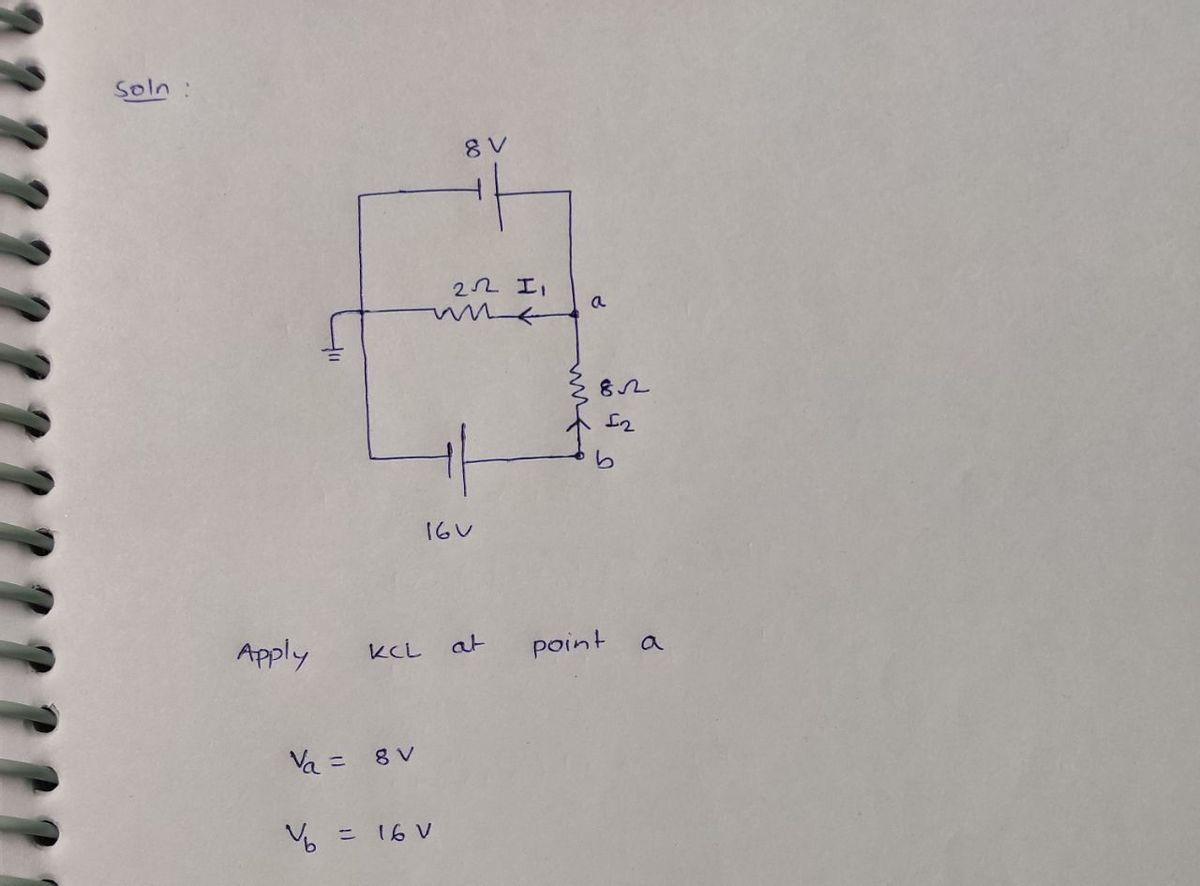 Soln :
8 V
2Ω I₁
a
8Ω
I₂
b
16V
Apply KCL at point a
Va = 8 V
Vb = 16 V